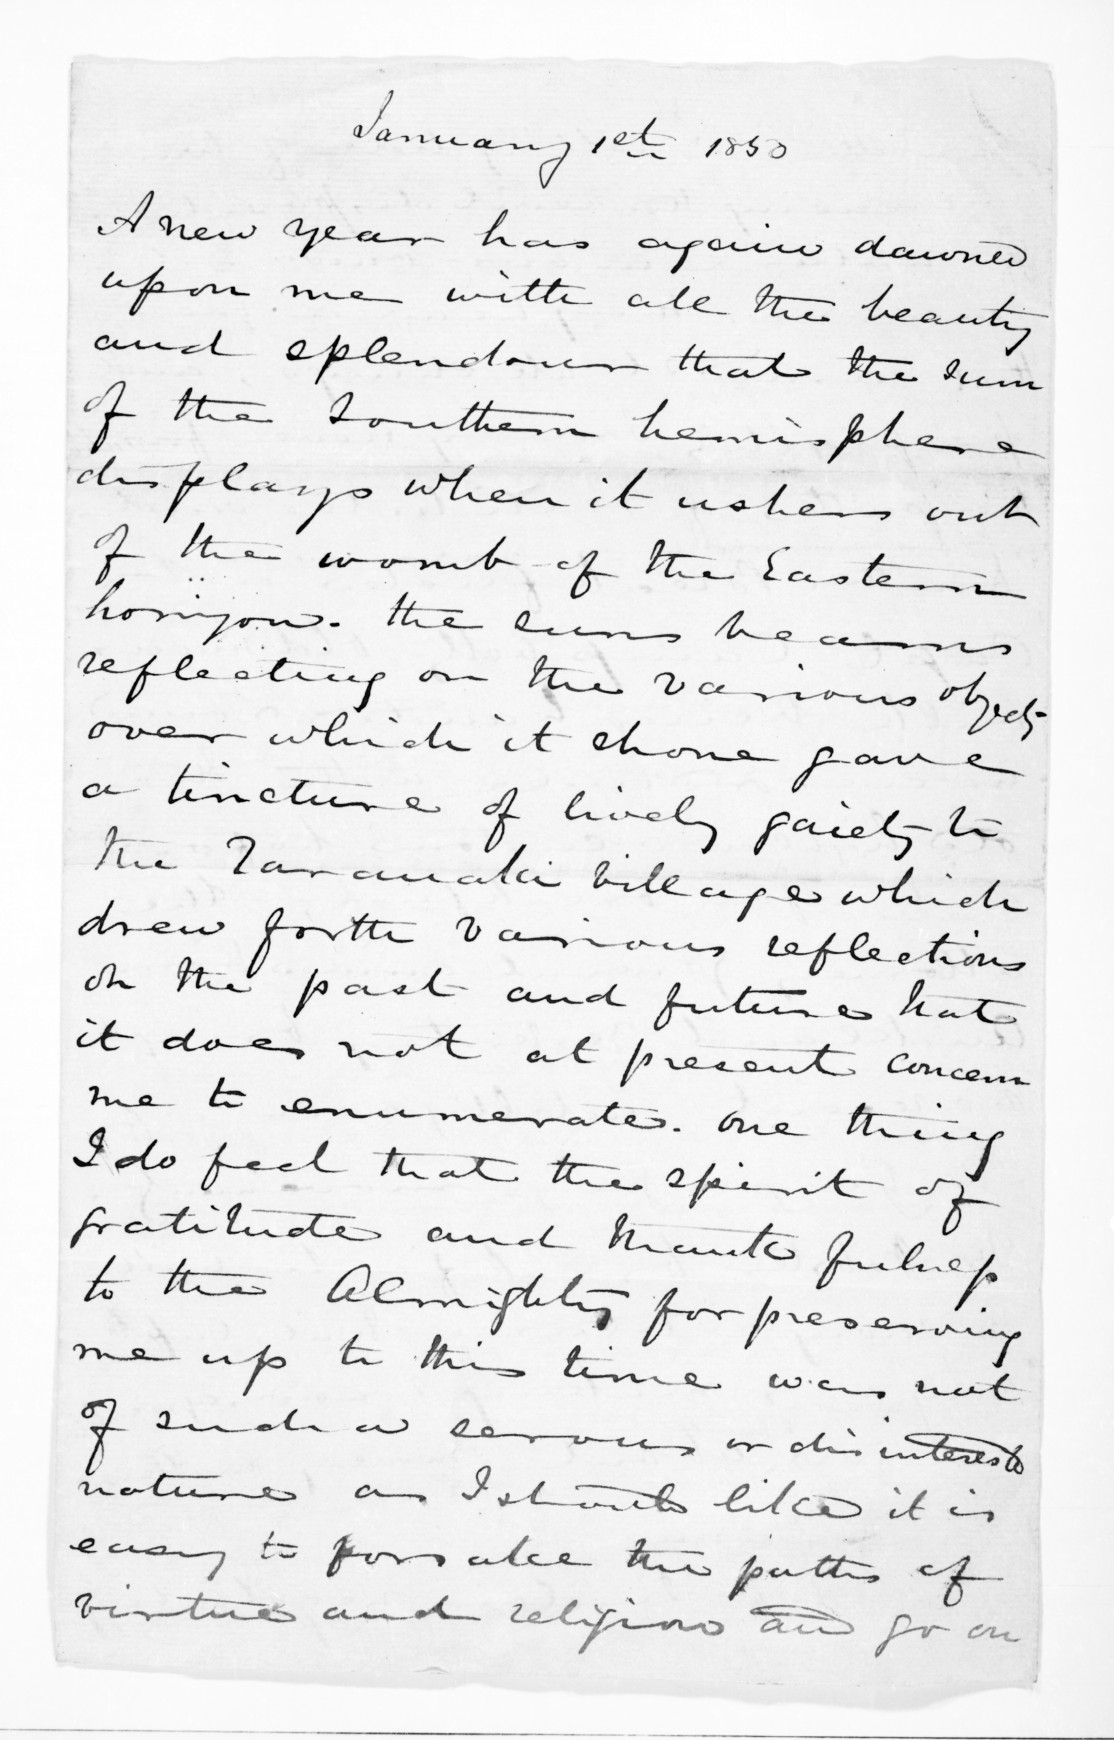 January 1st 1850
A new year has again dawned
upon me with all the beauty
and splendour that the sun
of the Southern hemisphere
displays when it ushers out
of the womb of the Eastern
horizon. the suns beams
reflecting on the various objects
over which it shone gave
a tincture of lively gaiety to
the Taranaki village which
drew forth various reflections
on the past and future that
it does not at present concern
me to enumerate. one thing
I do feel that the spirit of
gratitude and thankfulness
to the Almighty for preserving
me up to this time was not
of such a serious or disinterested
nature as I should like it is
easy to forsake the paths of
virtue and religion and go on